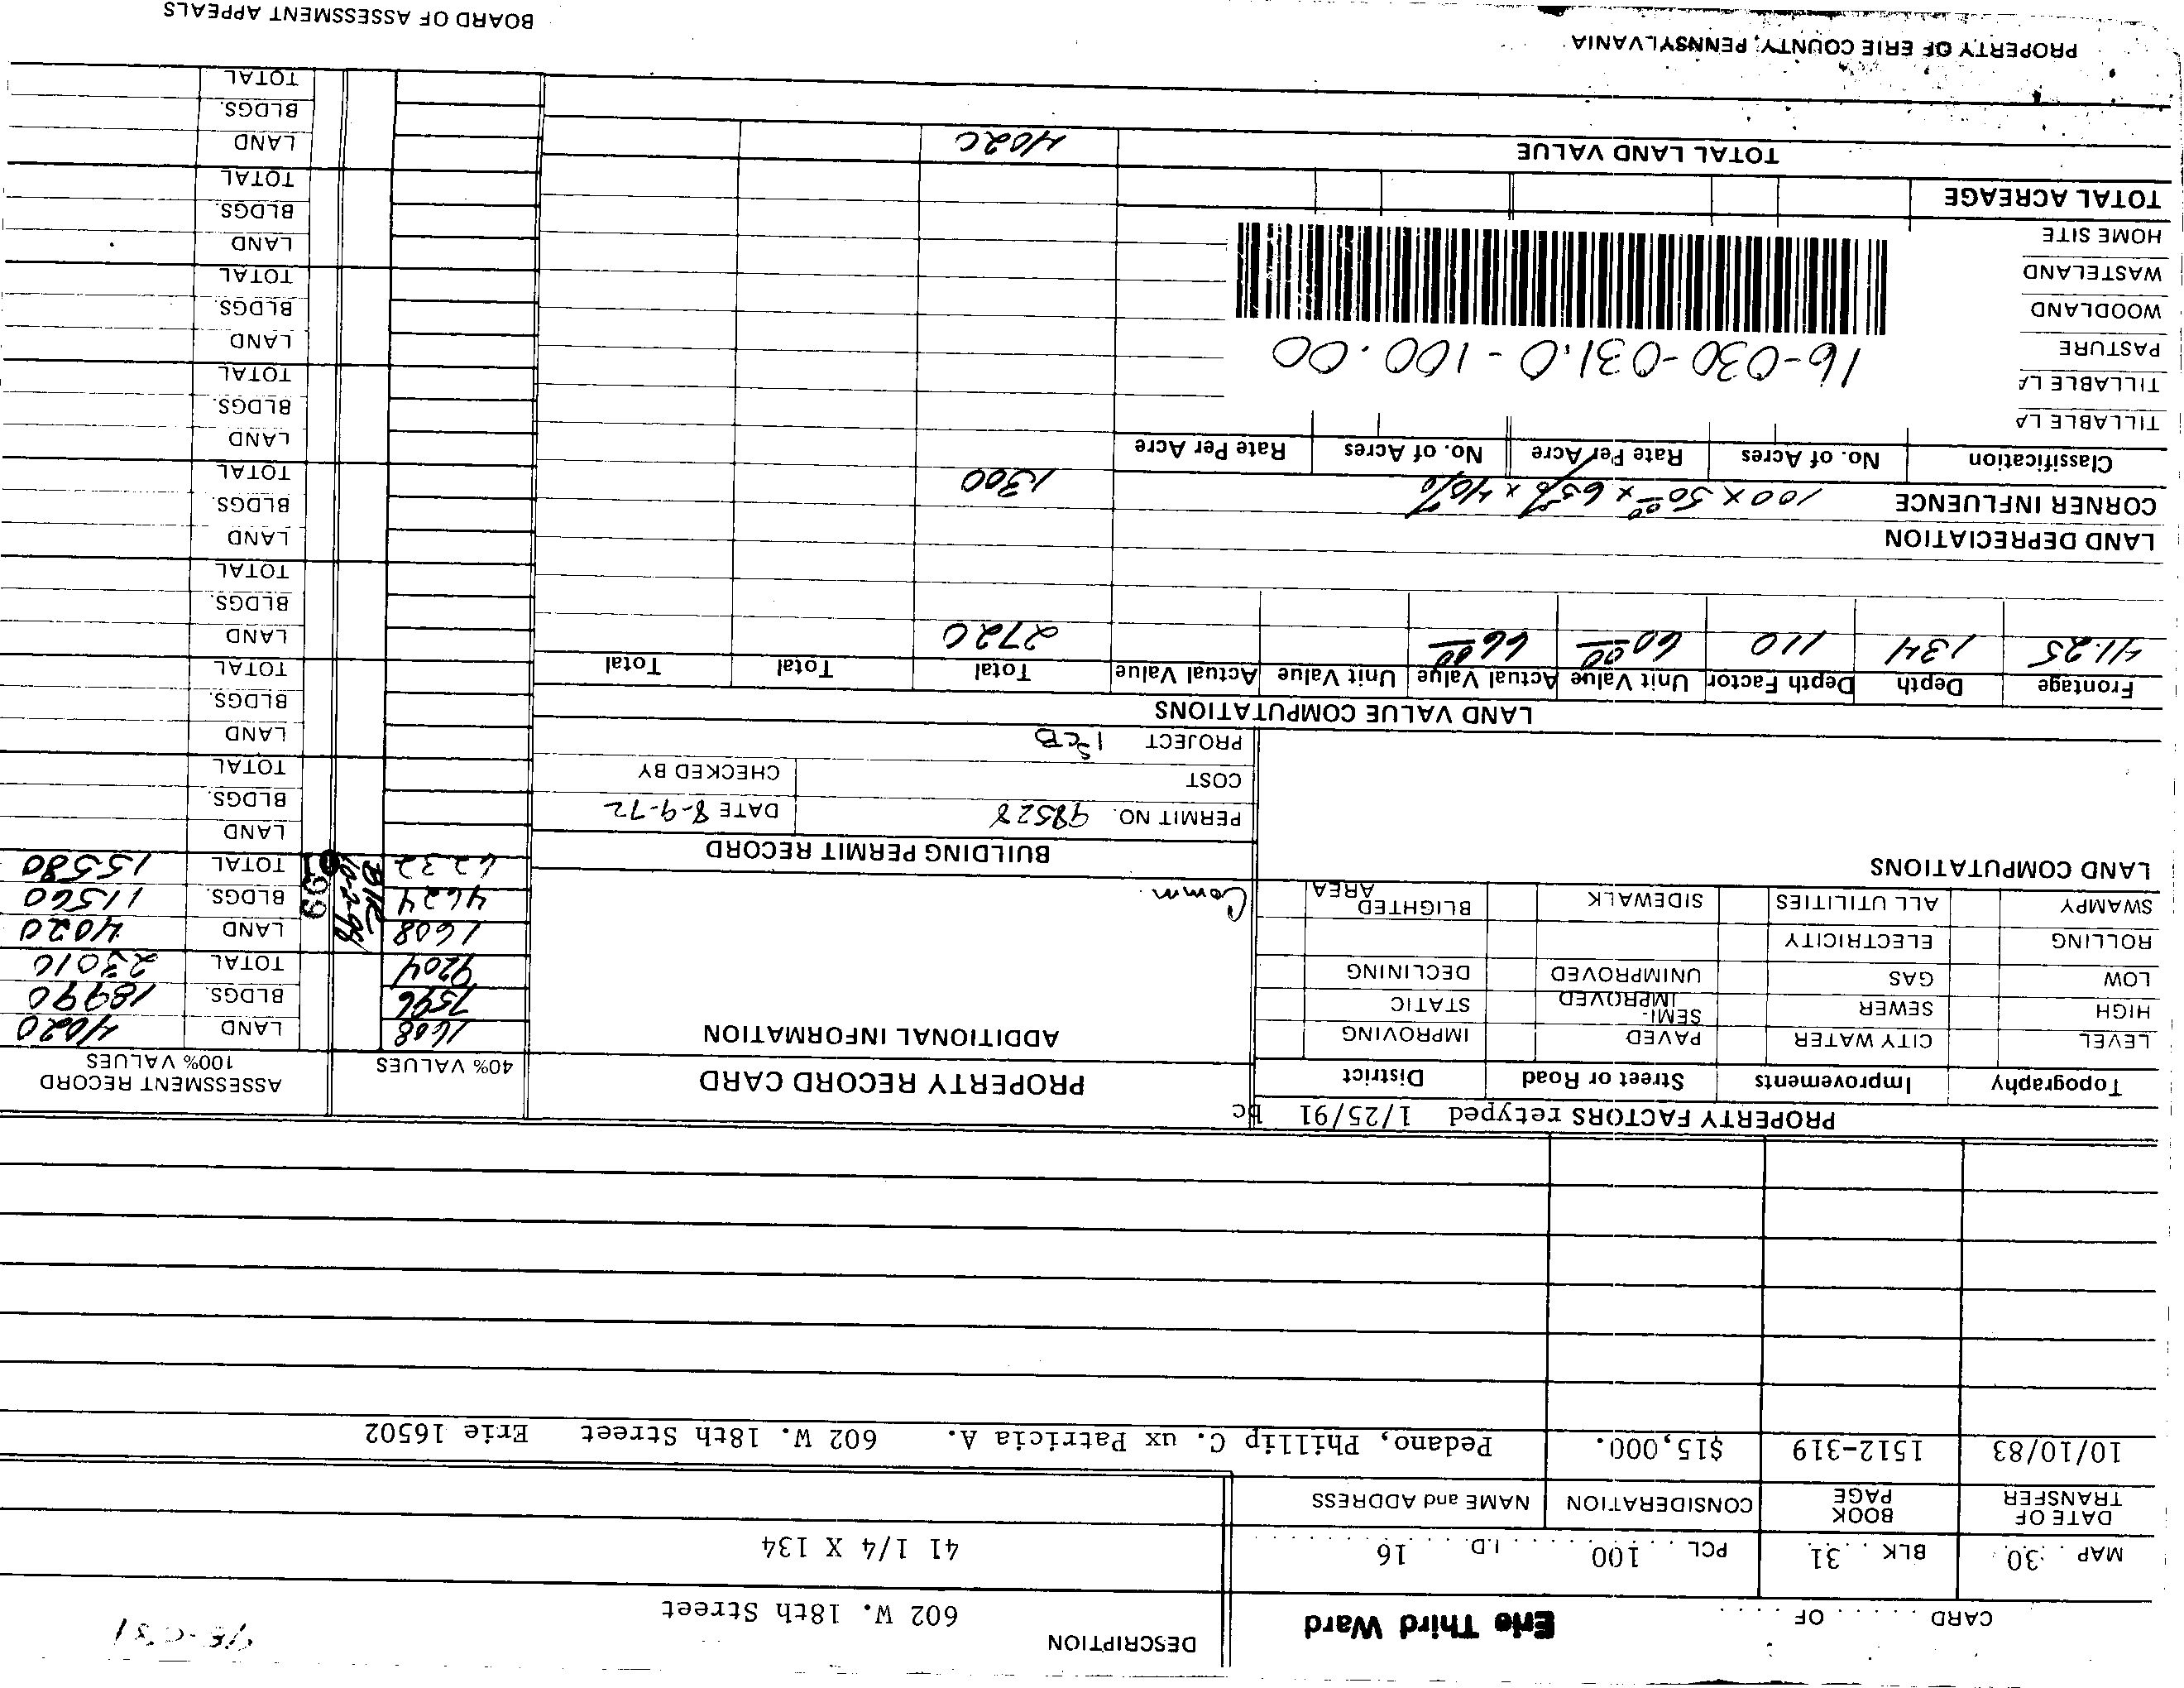 CARD . . . . . OF . . . .
Erie Third Ward
DESCRIPTION
602 W. 18th Street
MAP . 30 BLK . . 31 PCL . . . 100 . . . . I.D . . . . 16 . . . . .
41 1/4 X 134
DATE OF TRANSFER BOOK PAGE CONSIDERATION NAME and ADDRESS
10/10/83 1512-319 $15,000. Pedano, Phillip C. ux Patricia A. 602 W. 18th Street Erie 16502
PROPERTY FACTORS retyped 1/25/91 bc
Topography Improvements Street or Road District
LEVEL CITY WATER PAVED IMPROVING
HIGH SEWER SEMI-IMPROVED STATIC
LOW GAS UNIMPROVED DECLINING
ROLLING ELECTRICITY
SWAMPY ALL UTILITIES SIDEWALK BLIGHTED AREA
LAND COMPUTATIONS
PROPERTY RECORD CARD
ADDITIONAL INFORMATION
Comm.
BUILDING PERMIT RECORD
PERMIT NO. 98528 DATE 8-9-72
COST CHECKED BY
PROJECT
40% VALUES ASSESSMENT RECORD 100% VALUES
1608 LAND 4020
7596 BLDGS. 18990
9204 TOTAL 23010
1608 LAND 4020
4624 BLDGS. 11560
6232 TOTAL 15580
LAND
BLDGS.
TOTAL
LAND
BLDGS.
TOTAL
LAND
BLDGS.
TOTAL
LAND
BLDGS.
TOTAL
LAND
BLDGS.
TOTAL
LAND
BLDGS.
TOTAL
LAND
BLDGS.
TOTAL
LAND
BLDGS.
TOTAL
LAND VALUE COMPUTATIONS
Frontage Depth Depth Factor Unit Value Actual Value Unit Value Actual Value Total Total Total
41.25 134 110 60 00 66 00 2720
LAND DEPRECIATION
CORNER INFLUENCE 100 x 50 00 x 65% x 40% 1300
Classification No. of Acres Rate Per Acre No. of Acres Rate Per Acre
TILLABLE LA
TILLABLE LA
PASTURE
WOODLAND
WASTELAND
HOME SITE
16-030-031.0-100.00
TOTAL ACREAGE
TOTAL LAND VALUE 4020
PROPERTY OF ERIE COUNTY, PENNSYLVANIA
BOARD OF ASSESSMENT APPEALS